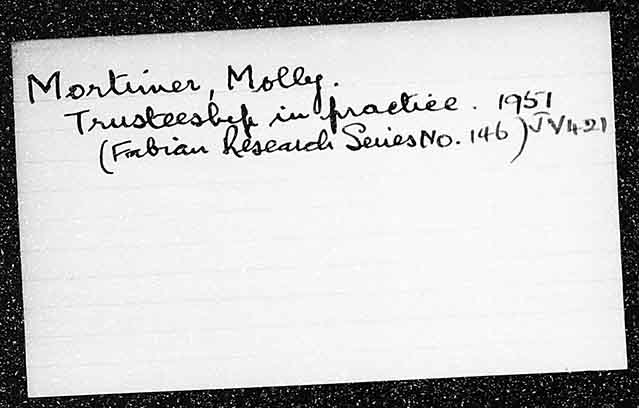 Mortimer, Molly.
Trusteeship in practice. 1951
(Fabian Research Series No. 146) JV421